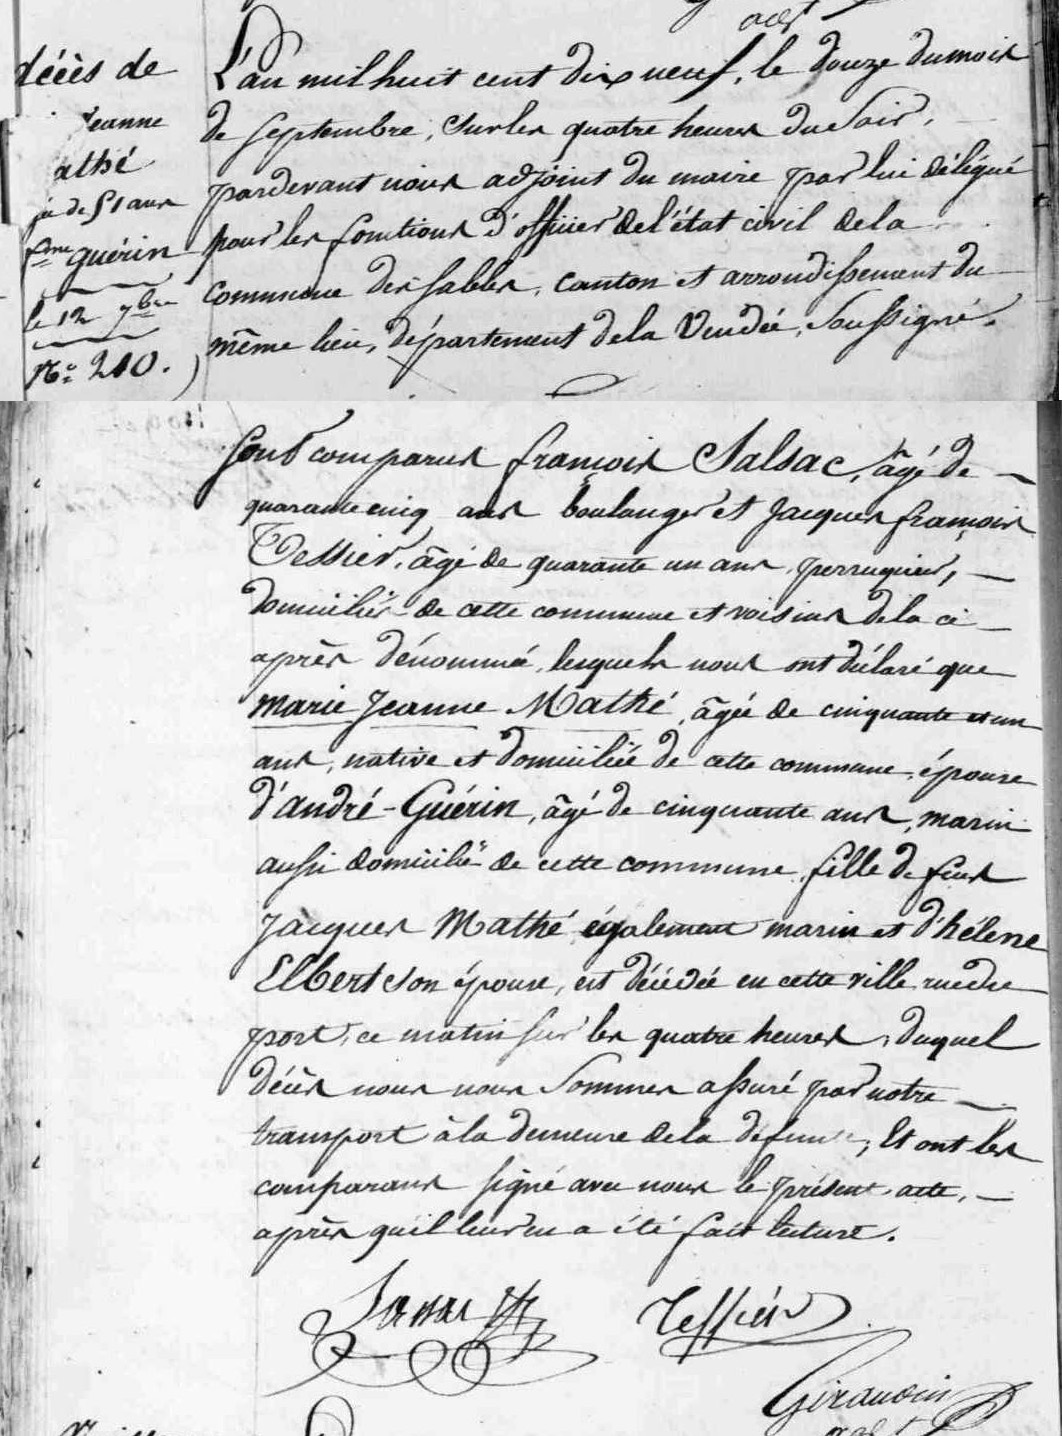 adjt
décès de
Jeanne
athé
ée de 51 ans
fme guérin
le 12 7bre
No. 210.
L'an mil huit cent dix neuf, le douze du mois
de Septembre, sur les quatre heures du soir,
pardevant nous adjoint du maire par lui délégué
pour les fonctions d'officier de l'état civil de la
commune des sables, canton et arrondissement du
même lieu, département de la Vendée, soussigné.
sont comparus françois Salsac, âgé de
quarante cinq ans boulanger et Jacques françois
Tessier, âgé de quarante un ans, perruquier,
domiciliés de cette commune et voisins de la ci
après dénommée, lesquels nous ont déclaré que
marie Jeanne Mathé, âgée de cinquante et un
ans, native et domiciliée de cette commune, épouse
d'andré-Guérin, âgé de cinquante ans, marin
aussi domicilié de cette commune, fille de feus
Jacques Mathé également marin et d'hélene
Elbert son épouse, est décédée en cette ville rue du
port, ce matin sur les quatre heures, duquel
décès nous nous sommes assuré par notre
transport à la demeure de la défunte; Et ont les
comparans signé avec nous le présent acte,
après qu'il leur en a été fait lecture.
Tessier
Giraudin